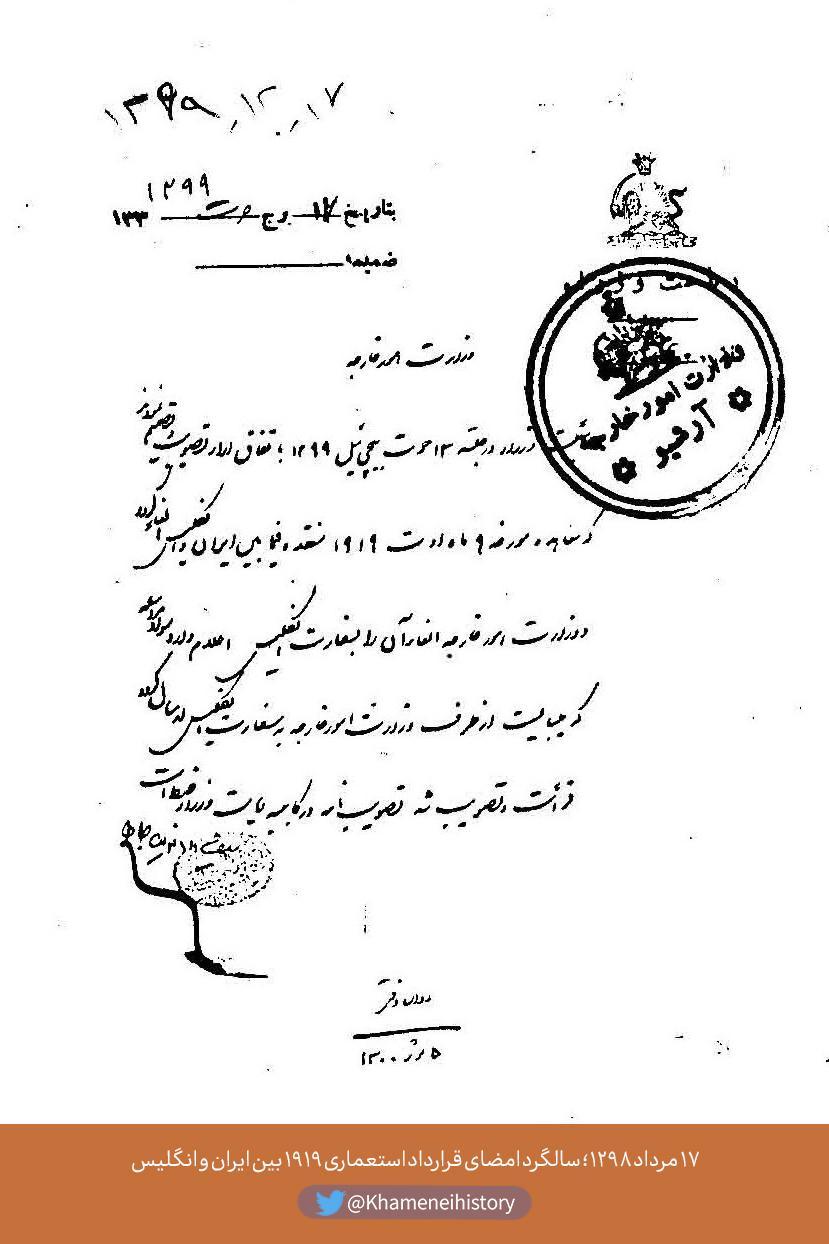 ۱۲۹۹ ، ۱۲ ، ۱۷
۱۲۹۹
بتاریخ ۱۷ برج حوت ۱۳۳
ضمیمه
وزارت امور خارجه
وزارت امور خارجه
آرشیو
هیئت وزراء در جلسه ۱۳ حوت پیچی ئیل ۱۲۹۹ باتفاق آراء تصویب تصمیم نمودند
که معاهده مورخه ۹ ماه اوت ۱۹۱۹ منعقده فیمابین ایران و انگلیس الغاء گردد
و وزارت امور خارجه الغاء آن را بسفارت انگلیس اعلام دارد و سواد مراسله
که میبایست از طرف وزارت امور خارجه به سفارت انگلیس ارسال گردد
قرائت و تصویب شد تصویب نامه در کابینه ریاست وزراء ضبط است
۵ ۱۳۰۰
۱۷ مرداد ۱۲۹۸؛ سالگرد امضای قرارداد استعماری ۱۹۱۹ بین ایران و انگلیس
@Khameneihistory